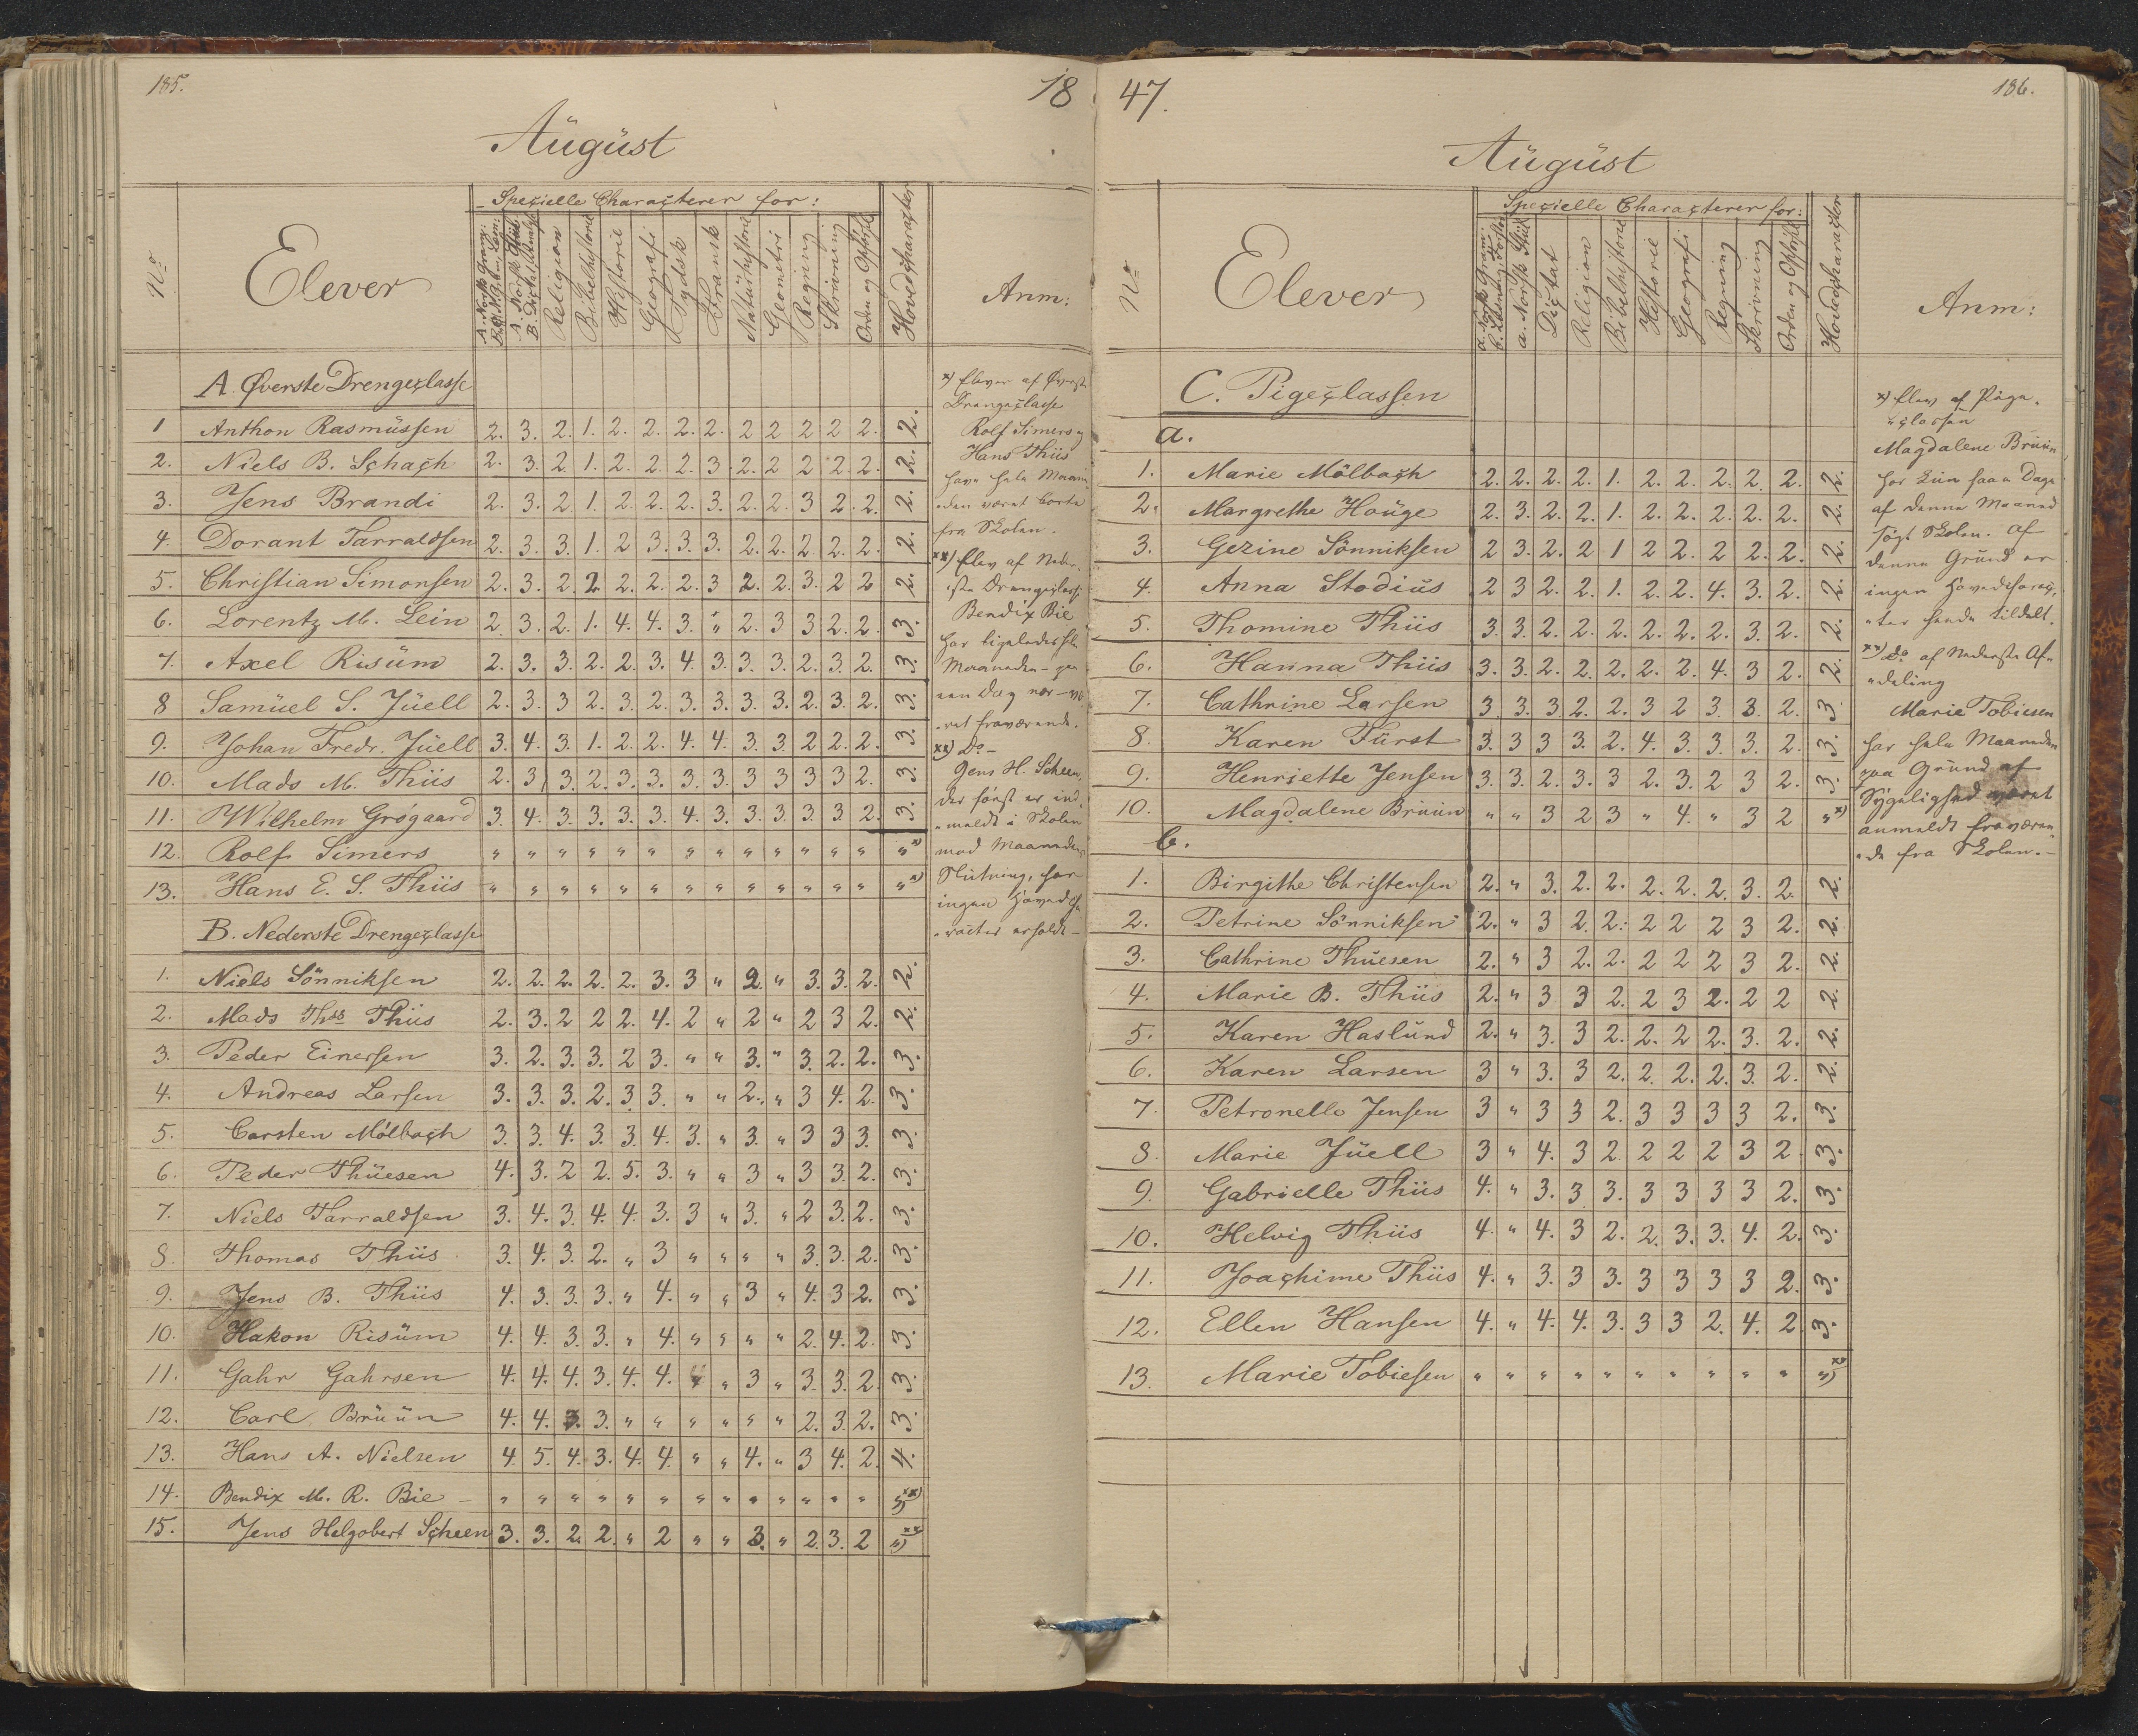 185.
18
August
Specielle Characterer for:
No
Elever
A. Norsk Gram:
A. Norsk Stiil
B. Dictat
Religion
Bibelhistorie
Historie
Geografi
Tydsk
Fransk
Naturhistorie
Geometri
Regning
Skrivning
Orden og Opførsel
Hovedcharacter
Anm:
A. Øverste Drengeclasse
1 Anthon Rasmussen 2. 3. 2. 1. 2. 2. 2. 2. 2 2 2 2 2. 2.
2. Niels B. Schach 2. 3. 2. 1. 2. 2. 2. 3. 2. 2 2 2. 2. 2.
3. Jens Brandi 2. 3. 2 1. 2. 2. 2. 3. 2. 2. 3 2. 2. 2.
4. Dorant Tarraldsen 2. 3. 3. 1. 2 3. 3. 3. 2. 2. 2. 2. 2. 2.
5. Christian Simonsen 2. 3. 2. 2. 2. 2. 2. 3 2. 2. 3. 2 2 2.
6. Lorentz M. Lein 2. 3. 2. 1. 4. 4. 3. " 2. 3 3 2. 2. 3.
7. Axel Risum 2. 3. 3. 2. 2. 3. 4. 3. 3. 3. 2. 3. 2. 3.
8 Samuel S. Juell 2. 3. 3 2. 3. 2. 3. 3. 3. 3. 2. 3. 2. 3.
9. Johan Fredr. Juell 3. 4. 3. 1. 2. 2. 4. 4. 3. 3. 2 2. 2. 3.
10. Mads M. Thiis 2. 3 3. 2. 3. 3. 3. 3. 3 3 3 3 2. 3.
11. Wilhelm Grøgaard 3. 4. 3. 3. 3. 3. 4. 3. 3. 3. 3. 3 2. 3.
12. Rolf Simers " " " " " " " " " " " " " " x)
13. Hans E. S. Thiis " " " " " " " " " " " " " " x)
B. Nederste Drengeclasse
1. Niels Sönniksen 2. 2. 2. 2. 2. 3. 3 " 2. " 3. 3. 2. 2.
2. Mads Thss Thiis 2. 3. 2 2 2. 4. 2 " 2 " 2 3 2. 2.
3. Peder Einersen 3. 2. 3. 3. 2 3. " " 3. " 3. 2. 2. 3.
4. Andreas Larsen 3. 3. 3. 2. 3. 3. " " 2. " 3 4. 2. 3.
5. Carsten Mölbach 3. 3. 4. 3. 3. 4. 3. " 3. " 3 3 3. 3.
6. Peder Thuesen 4. 3. 2 2. 5. 3. " " 3 " 3 3. 2. 3.
7. Niels Tarraldsen 3. 4. 3. 4. 4. 3. 3 " 3. " 2 3. 2. 3.
8. Thomas Thiis 3. 4. 3. 2. " 3 " " " " 3. 3. 2. 3.
9. Jens B. Thiis 4. 3. 3. 3. " 4. " " 3 " 4. 3 2. 3.
10. Hakon Risum 4. 4. 3. 3. " 4. " " " " 2. 4. 2. 3.
11. Gahr Gahrsen 4. 4. 4. 3. 4. 4. " 3 " 3. 3. 2. 3.
12. Carl Bruun 4. 4. 3. 3. " " " " " " 2. 3. 2. 3.
13. Hans A. Nielsen 4. 5. 4. 3. 4. 4. " " 4. " 3 4. 2. 4.
14. Bendix M. R. Bie " " " " " " " " " " " " " " xx)
15. Jens Helgobert Scheen 3. 3. 2. 2. " 2 " " 3. " 2. 3. 2 " xx)
x) Elever af Øverste
Drengeclasse
Rolf Simers og
Hans Thiis
have hele Maane-
den været borte
fra Skolen.
xx) Elev af Neder-
ste Drengeclasse
Bendix Bie
har ligeledes hele
Maaneden
een Dag nær
ret fraværende.
xx) Do
Jens H. Scheen,
der først er ind
meldt i Skolen
mod Maanedens
Slutning, har
ingen Hovedcha-
racter erholdt
47.
186.
August
No
Elever
Specielle Characterer for:
a. Norsk Gram.
a. Norsk Stiil
Dictat
Religion
Bibelhistorie
Historie
Geografi
Regning
Skrivning
Orden og Opførsel
Hovedcharacter
Anm:
C. Pigeclassen
a.
1. Marie Mölbach 2. 2. 2. 2. 1. 2. 2. 2. 2. 2. 2.
2. Margrethe Houge 2. 3. 2. 2. 1. 2. 2. 2. 2. 2. 2.
3. Gezine Sönniksen 2 3. 2. 2 1 2 2. 2 2. 2. 2.
4. Anna Stodius 2 3 2. 2. 1. 2. 2. 4. 3. 2. 2.
5. Thomine Thiis 3. 3. 2. 2. 2. 2. 2. 2. 3. 2. 2.
6. Hanna Thiis 3. 3. 2. 2. 2. 2. 2. 4. 3 2. 2.
7. Cathrine Larsen 3. 3. 3 2. 2. 3 2 3. 3. 2. 3
8. Karen Fürst 3. 3 3 3. 2. 4. 3. 3. 3. 2. 3.
9. Henriette Jensen 3. 3. 2. 3. 3 2. 3. 2 3 2. 3.
10. Magdalene Bruun " " 3 2 3 " 4. " 3 2 " x)
b.
1. Birgithe Christensen 2. " 3. 2. 2. 2. 2. 2. 3. 2. 2.
2. Petrine Sönniksen 2. " 3 2. 2. 2 2 2 3 2. 2.
3. Cathrine Thuesen 2. " 3 2. 2. 2 2 2 3 2. 2.
4. Marie B. Thiis 2. " 3 3 2. 2 3 2. 2 2 2.
5. Karen Haslund 2. " 3. 3 2. 2. 2 2. 3. 2. 2.
6. Karen Larsen 3 " 3. 3 2. 2. 2. 2. 3. 2. 2.
7. Petronelle Jensen 3 " 3 3 2. 3 3 3 3 2. 3.
8. Marie Juell 3 " 4. 3 2. 2 2 2 3 2. 3.
9. Gabrielle Thiis 4. " 3. 3 3. 3 3 3 3 2. 3.
10. Helvig Thiis 4. " 4. 3 2. 2. 3. 3. 4. 2. 3.
11. Joachime Thiis 4. " 3. 3 3. 3 3 3 3 2. 3.
12. Ellen Hansen 4. " 4. 4. 3. 3 3 2. 4. 2. 3.
13. Marie Tobiesen " " " " " " " " " " " xx)
x) Elev af Pige-
classen
Magdalene Bruun
har kun faae Dage
af denne Maaned
søgt Skolen. Af
denne Grund er
ingen Hovedcharac-
ter hende tildelt.
xx) Do af Nederste Af-
deling
Marie Tobiesen
har hele Maaneden
paa Grund af
Sygelighed været
anmeldt fraværen-
de fra Skolen.